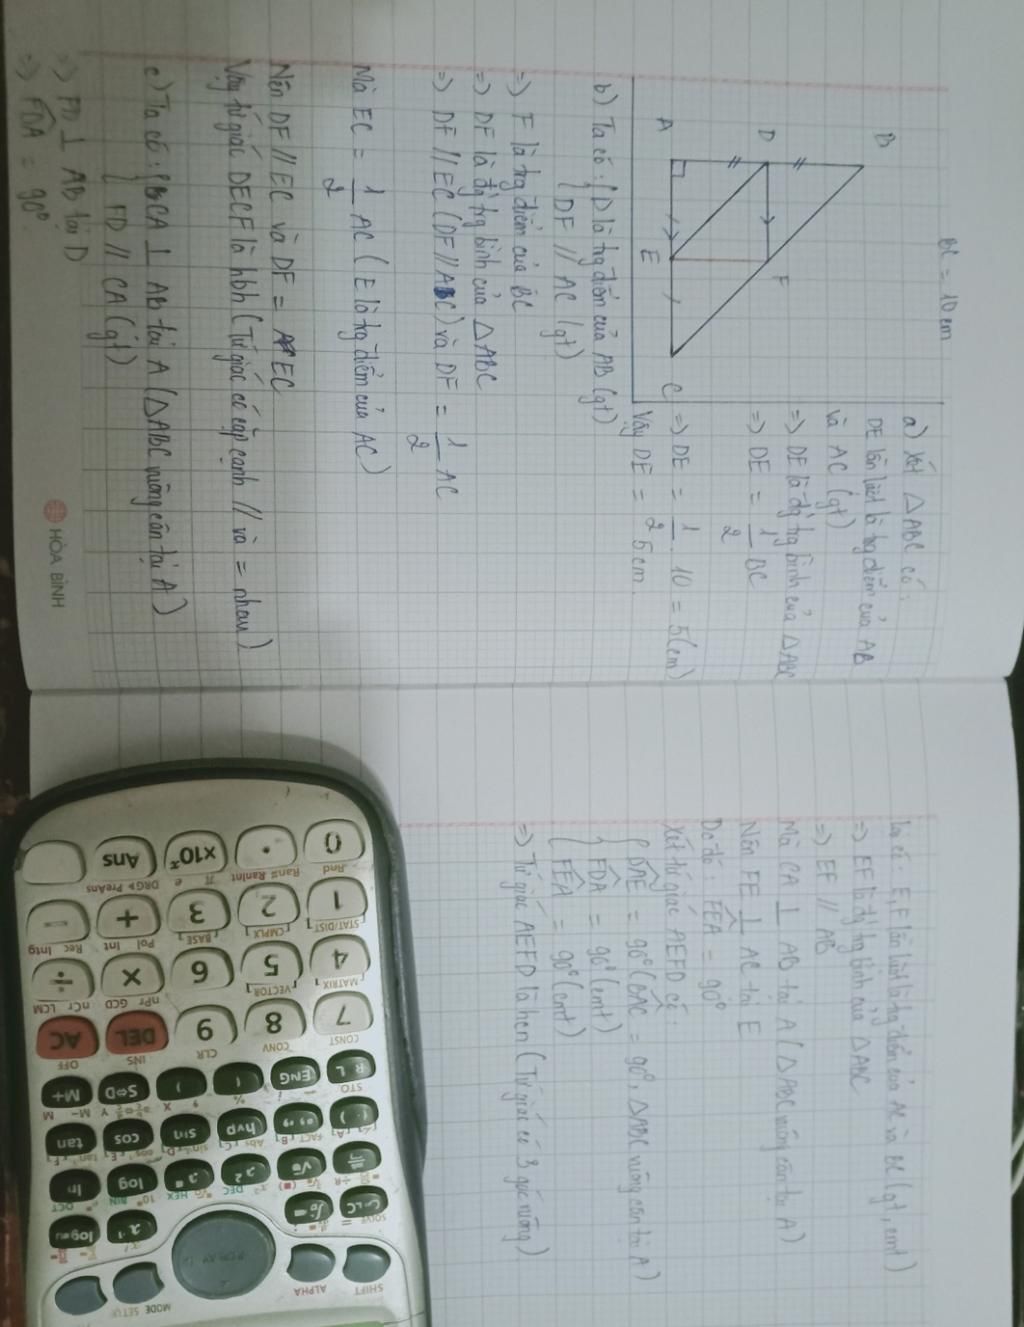 BC = 10cm
B
D
F
A
E
C
a) Xét △ABC có:
DE lần lượt là trg điểm của AB
và AC (gt)
=> DE là đg trg bình của △ABC
=> DE = 1/2 BC
=> DE = 1/2 . 10 = 5(cm)
Vậy DE = 5cm.
b) Ta có: { D là trg điểm của AB (gt)
DF // AC (gt)
=> F là trg điểm của BC
=> DF là đg trg bình của △ABC
=> DF // EC (DF // AC) và DF = 1/2 AC
Mà EC = 1/2 AC (E là trg điểm của AC)
Nên DF // EC và DF = EC
Vậy tứ giác DECF là hbh (Tứ giác có cặp cạnh // và = nhau)
c) Ta có: { CA ⊥ AB tại A (△ABC vuông cân tại A)
FD // CA (gt)
=> FD ⊥ AB tại D
=> FDA = 90°
HÒA BÌNH
Ta có: E, F lần lượt là trg điểm của AC và BC (gt, cmt)
=> EF là đg trg bình của △ABC
=> EF // AB
Mà CA ⊥ AB tại A (△ABC vuông cân tại A)
Nên FE ⊥ AC tại E
Do đó: FEA = 90°
Xét tứ giác AEFD có:
{ DAE = 90° (BAC = 90°, △ABC vuông cân tại A)
FDA = 90° (cmt)
FEA = 90° (cmt)
=> Tứ giác AEFD là hcn (Tứ giác có 3 góc vuông)
SHIFT
ALPHA
MODE SETUP
REPLAY
SOLVE
CALC
log
ln
(-)
hyp
sin
cos
tan
STO
RCL
ENG
(
)
S⇔D
M+
CONST
CONV
CLR
INS
OFF
7
8
9
DEL
AC
MATRIX
VECTOR
nPr GCD
nCr LCM
4
5
6
×
÷
STAT/DIST
CMPLX
BASE
Pol Int
Rec Intg
1
2
3
+
-
Rnd
Ran# RanInt
π e
DRG▸ PreAns
0
.
×10ˣ
Ans